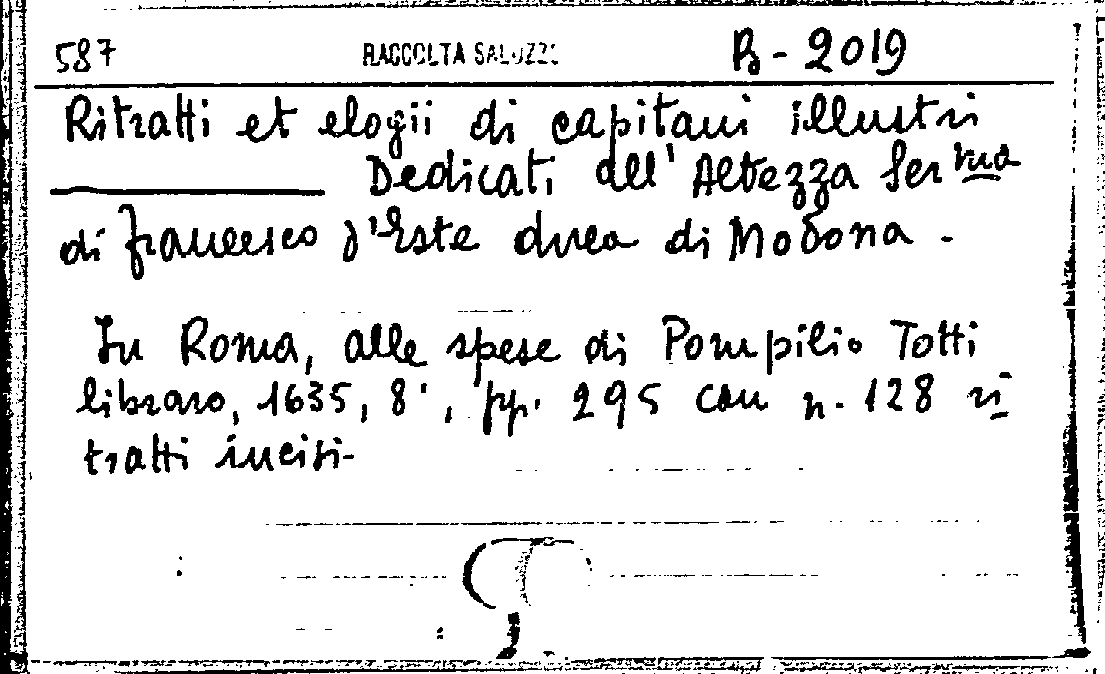 587 RACCOLTA SALUZZO B - 2019
Ritratti et elogii di capitani illustri
Dedicati all'Altezza Ser.ma
di Francesco d'Este duca di Modona.
In Roma, alle spese di Pompilio Totti
libraro, 1635, 8°, pp. 295 con n. 128 ri
tratti incisi-